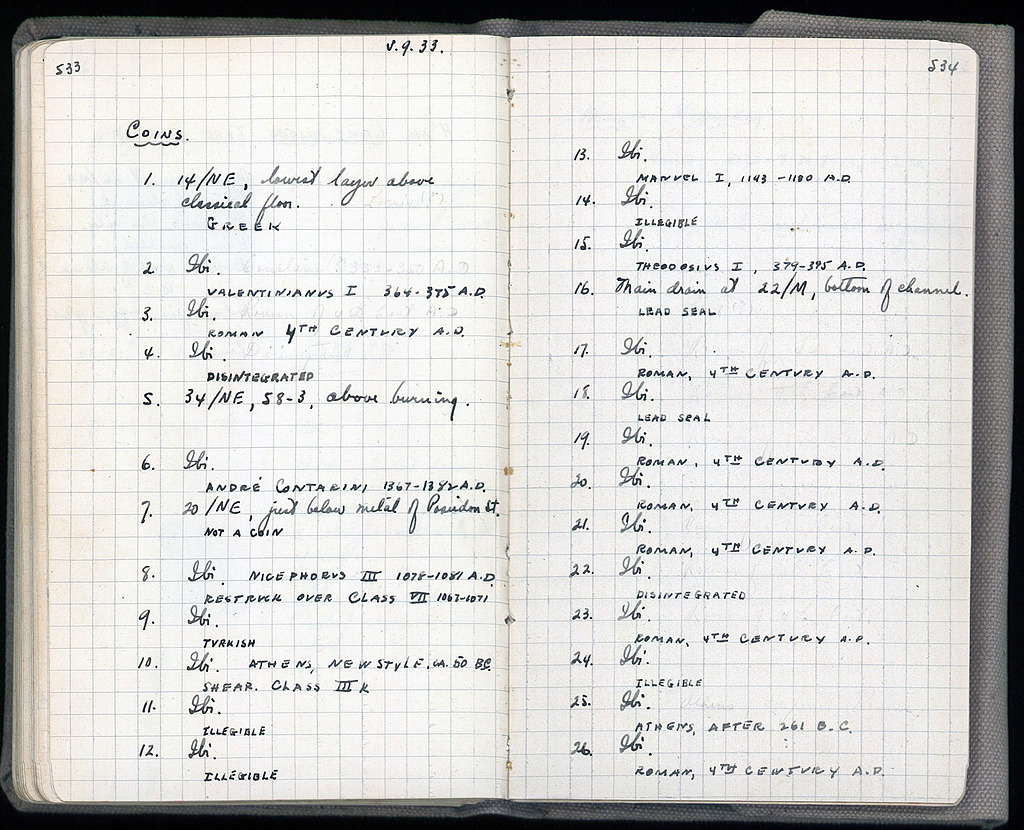 533
V.9.33.
COINS.
1. 14/NE, lowest layer above
classical floor.
GREEK
2. Ibi.
VALENTINIANUS I 364-375 A.D.
3. Ibi.
ROMAN 4TH CENTURY A.D.
4. Ibi.
DISINTEGRATED
5. 34/NE, 58-3, above burning.
6. Ibi.
ANDRÉ CONTARINI 1367-1382 A.D.
7. 20/NE, just below metal of Poseidon St.
NOT A COIN
8. Ibi. NICEPHORUS III 1078-1081 A.D.
RESTRUCK OVER CLASS VII 1067-1071
9. Ibi.
TURKISH
10. Ibi. ATHENS, NEW STYLE, CA. 50 BC.
SHEAR. CLASS III K
11. Ibi.
ILLEGIBLE
12. Ibi.
ILLEGIBLE
534
13. Ibi.
MANUEL I, 1143-1180 A.D.
14. Ibi.
ILLEGIBLE
15. Ibi.
THEODOSIUS I, 379-395 A.D.
16. Main drain at 22/M, bottom of channel.
LEAD SEAL
17. Ibi.
ROMAN, 4TH CENTURY A.D.
18. Ibi.
LEAD SEAL
19. Ibi.
ROMAN, 4TH CENTURY A.D.
20. Ibi.
ROMAN, 4TH CENTURY A.D.
21. Ibi.
ROMAN, 4TH CENTURY A.D.
22. Ibi.
DISINTEGRATED
23. Ibi.
ROMAN, 4TH CENTURY A.D.
24. Ibi.
ILLEGIBLE
25. Ibi.
ATHENS, AFTER 261 B.C.
26. Ibi.
ROMAN, 4TH CENTURY A.D.